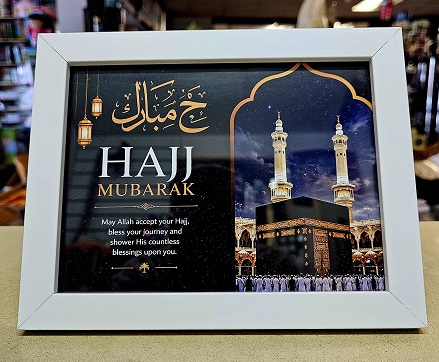 حج مبارك
HAJJ
MUBARAK
May Allah accept your Hajj,
bless your journey and
shower His countless
blessings upon you.